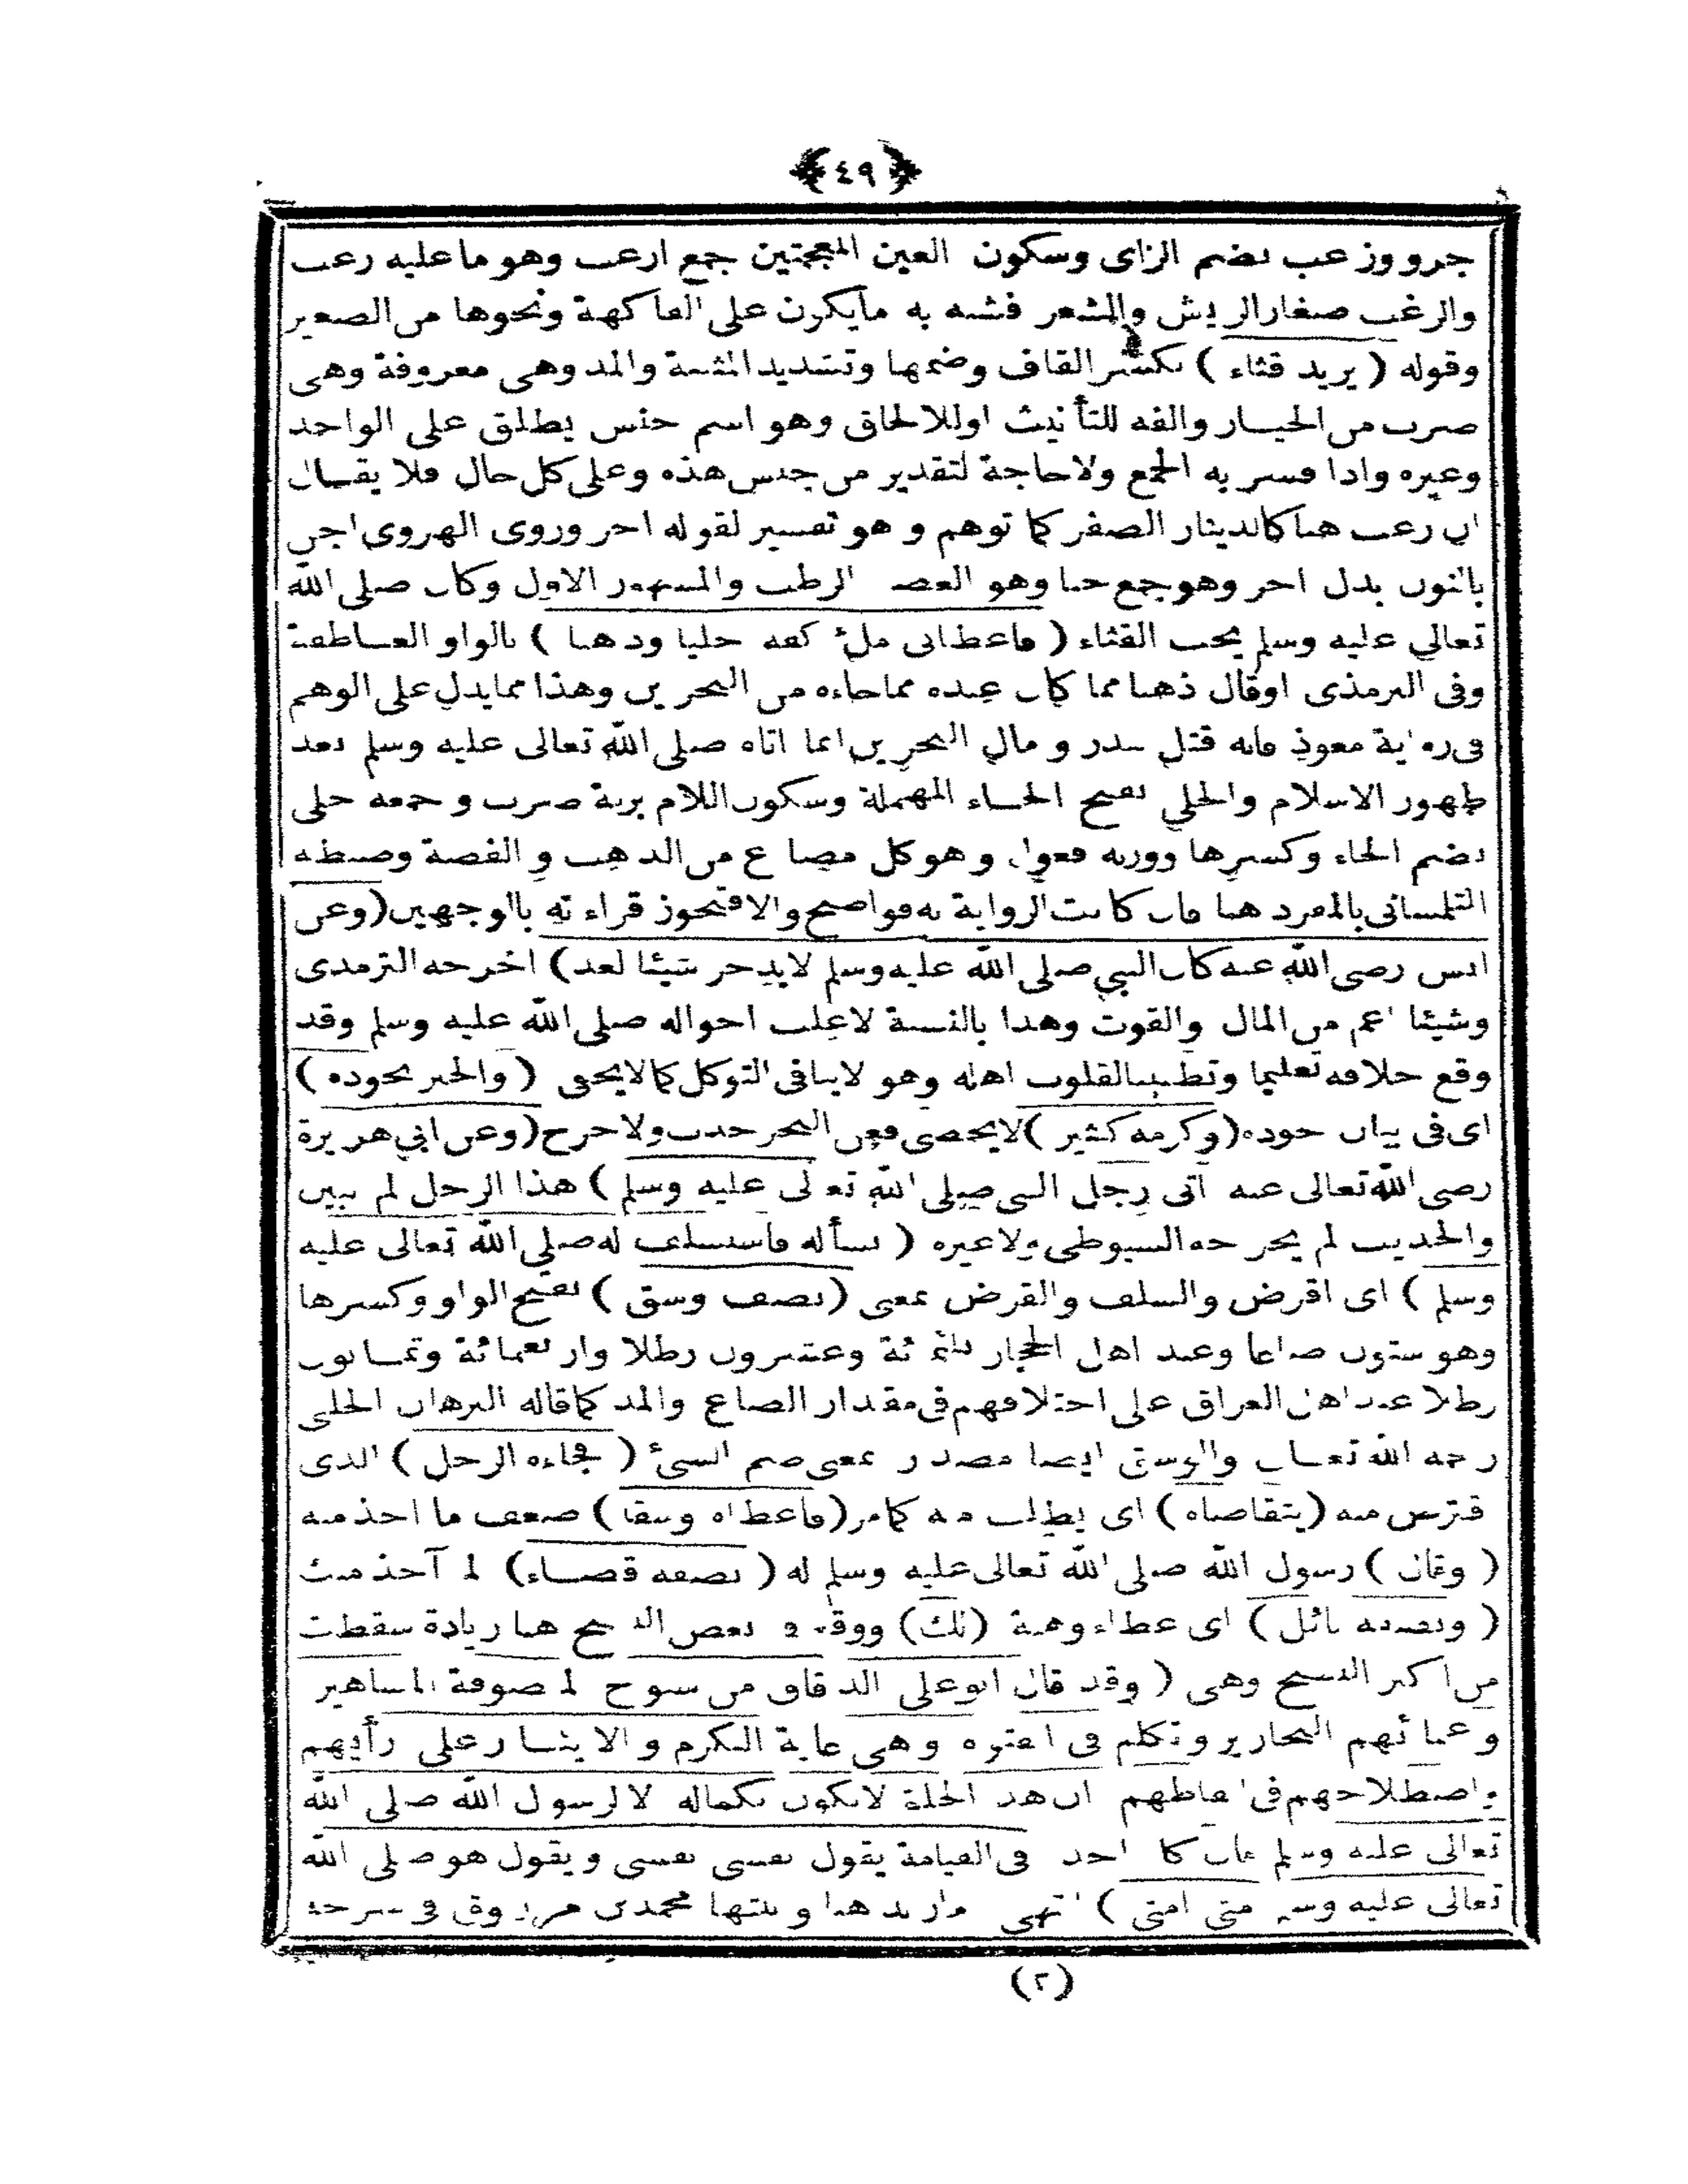 ﴿٤٩﴾
جرو وزغب بضم الزاى وسكون الغين المعجمتين جمع ازغب وهو ما عليه زغب
والزغب صغار الريش والشعر فشبه به ما يكون على الفاكهة ونحوها من الصغير
وقوله ( يريد قثاء ) بكسر القاف وضمها وتشديد المثلثة والمد وهى معروفة وهى
ضرب من الخيار والفه للتأنيث او للالحاق وهو اسم جنس يطلق على الواحد
وغيره واذا فسر به الجمع ولا حاجة لتقدير من جنس هذه وعلى كل حال فلا يقال
ان زغب هنا كالدينار الصفر كما توهم و هو تفسير لقوله اجر وروى الهروى اجن
بالنون بدل اجر وهو جمع جنا وهو الغض الرطب والمشهور الاول وكان صلى الله
تعالى عليه وسلم يحب القثاء ( فاعطانى ملئ كفه حليا وذهبا ) بالواو العاطفة
وفى الترمذى او قال ذهبا مما كان عنده مما جاءه من البحرين وهذا مما يدل على الوهم
فى رواية معوذ فانه قتل ببدر و مال البحرين انما اتاه صلى الله تعالى عليه وسلم بعد
ظهور الاسلام والحلي بفتح الحاء المهملة وسكون اللام بزنة ضرب و جمعه حلى
بضم الحاء وكسرها ووزنه فعول و هو كل مصاغ من الذهب و الفضة وضبطه
التلمسانى بالمفرد هنا فان كانت الرواية به فواضح والا فتجوز قراءته بالوجهين (وعن
انس رضى الله عنه كان النبي صلى الله عليه وسلم لا يدخر شيئا لغد) اخرجه الترمذى
وشيئا اعم من المال والقوت وهذا بالنسبة لاغلب احواله صلى الله عليه وسلم وقد
وقع خلافه تعليما وتطييبا لقلوب اهله وهو لا ينافى التوكل كما لا يخفى ( والخبر بجوده )
اى فى بيان جوده (وكرمه كثير )لا يحصى فعن البحر حدث ولا حرج (وعن ابي هريرة
رضى الله تعالى عنه اتى رجل النبى صلى الله تعالى عليه وسلم ) هذا الرجل لم يبين
والحديث لم يخرجه السيوطى ولا غيره ( يسأله فاستسلف له صلى الله تعالى عليه
وسلم ) اى اقرض والسلف والقرض بمعنى (نصف وسق ) بفتح الواو وكسرها
وهو ستون صاعا وعند اهل الحجاز ثلثمائة وعشرون رطلا واربعمائة وثمانون
رطلا عند اهل العراق على اختلافهم فى مقدار الصاع والمد كما قاله البرهان الحلبى
رحمه الله تعالى والوسق ايضا مصدر بمعنى ضم الشئ ( فجاءه الرجل ) الذى
اقترض منه (يتقاضاه ) اى يطلب منه كما مر (فاعطاه وسقا ) ضعف ما اخذ منه
( وقال ) رسول الله صلى الله تعالى عليه وسلم له ( نصفه قضاء ) لما آخذ منك
( ونصفه نائل ) اى عطاء وهبة (لك) ووقع فى بعض النسخ هنا زيادة سقطت
من اكثر النسخ وهى ( وقد قال ابو على الدقاق من شيوخ الصوفة المشاهير
وعلمائهم النحارير وتكلم فى الفتوة وهى غاية الكرم و الايثار على رأيهم
واصطلاحهم فى الفاظهم ان هذه الخلة لا تكون بكماله الا لرسول الله صلى الله
تعالى عليه وسلم فان كل احد فى القيامة يقول نفسى نفسى ويقول هو صلى الله
تعالى عليه وسلم امتى امتى ) انتهى
(٢)